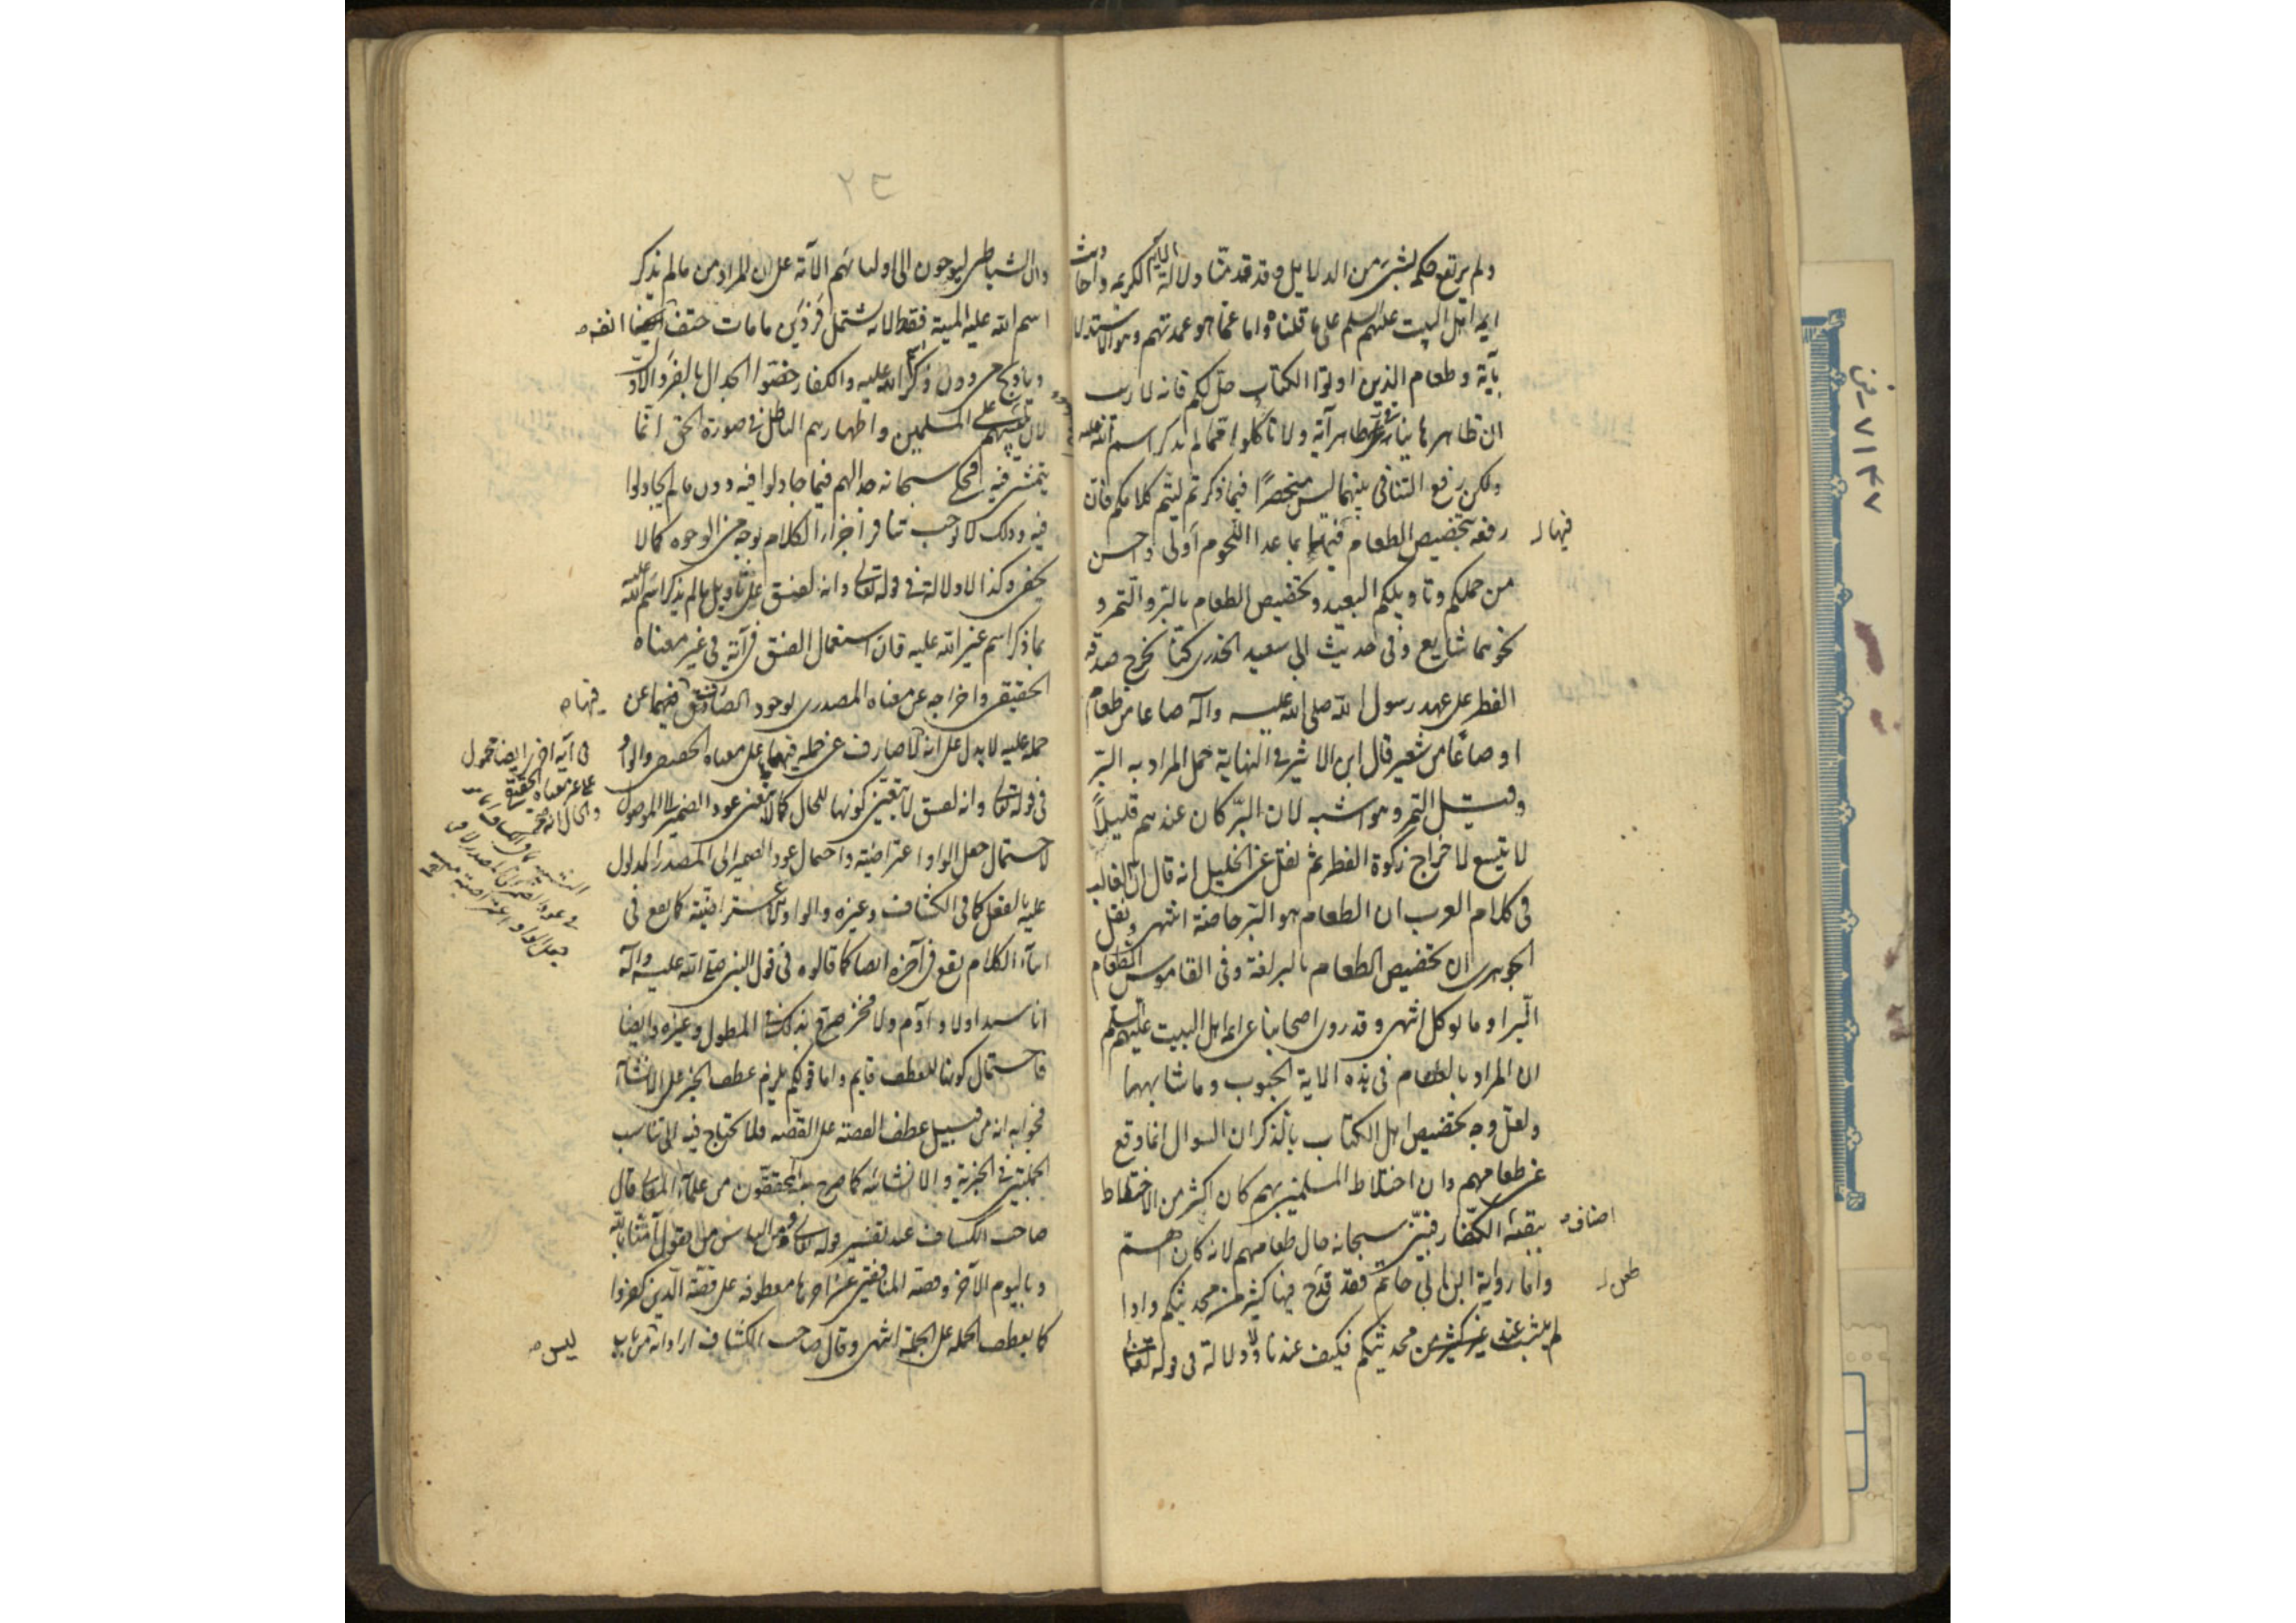 ولم يرتفع حكم بشيء من الدلايل وقد قدمنا دلالة الآية الكريمة واحاديث
ايمة اهل البيت عليهم السلم على ما قلناه واما عما هو عمدتهم وهو الاستدلال
بآية وطعام الذين اوتوا الكتاب حل لكم فانه لا ريب
ان ظاهرها ينافي ظاهر آية ولا تأكلوا مما لم يذكر اسم الله عليه
ولكن رفع التنافي بينهما ليس منحصرًا فيما ذكرتم ليتم كلامكم فان
رفعه بتخصيص الطعام فيها بما عدا اللحوم أولى واحسن
فيها
من حملكم وتاويلكم البعيد وتخصيص الطعام بالبر والتمر و
نحوهما شايع وفي حديث ابي سعيد الخدري كنا نخرج صدقة
الفطر على عهد رسول الله صلى الله عليه وآله صاعا من طعام
او صاعًا من شعير قال ابن الاثير في النهاية حمل المراد به البّر
وقيل التمر وهو اشبه لان البّر كان عندهم قليلًا
لا يتسع لاخراج زكوة الفطر ثم نقل عن الخليل انه قال ان الغالب
في كلام العرب ان الطعام هو البر خاصة انتهى ونقل
الجوهري ان تخصيص الطعام بالبر لغة وفي القاموس الطعام
البّر او ما يوكل انتهى وقد روى اصحابنا عن ايمة اهل البيت عليهم السلم
ان المراد بالطعام في هذه الاية الحبوب وما شابهها
ولعل وجه تخصيص اهل الكتاب بالذكر ان السوال انما وقع
عن طعامهم وان اختلاط المسلمين بهم كان اكثر من الاختلاط
ببقية الكفار فبيّن سبحانه حال طعامهم لانه كان اهم
اصناف
واما رواية ابن ابي حاتم فقد قدح فيها كثير من محدثيكم واذا
طعن
لم يثبت عند كثير من محدثيكم فكيف عندنا ولا دلالة في قوله تعالى
٢٤
وان الشياطين ليوحون الى اوليائهم الآية على ان المراد من ما لم يذكر
اسم الله عليه الميتة فقط لانه يشتمل فردين ما مات حتف انفه
وما ذبح من دون ذكر اسم الله عليه والكفار خصّوا الجدال بالفرد الاول
لان تلبيسهم على المسلمين واظهارهم الباطل في صورة الحق انما
يتمشى فيه فحكى سبحانه جدالهم فيما جادلوا فيه دون ما لم يجادلوا
فيه وذلك لا يوجب تنافر اجزاء الكلام بوجه من الوجوه كما لا
يخفى وكذا لا دلالة في قوله تعالى وانه لفسق على تاويل ما لم يذكر اسم الله عليه
بما ذكر اسم غير الله عليه فان استعمال الفسق في آية في غير معناه
الحقيقي واخراجه عن معناه المصدري لوجود الصارف فيها عن
فيها
حمله عليه لا يدل على انه لا صارف عن حمله فيها على معناه الحقيقي والواو
في قوله تعالى وانه لفسق لا يتعين كونها للحال كما لا يتعين عود الضمير الى الموصول
لاحتمال جعل الواو اعتراضية واحتمال عود الضمير الى المصدر المدلول
عليه بالفعل كما في الكشاف وغيره والواو الاعتراضية كما يقع في
اثناء الكلام يقع في آخره ايضا كما قالوه في قول النبي صلى الله عليه وآله
انا سيد اولاد آدم ولا فخر صرح بذلك في المطول وغيره وايضا
فاحتمال كونها للعطف قايم واما قولكم يلزم عطف الخبر على الانشاء
فجوابه انه من قبيل عطف القصة على القصة فلا يحتاج فيه الى تناسب
الجملتين في الخبرية والانشائية كما صرح به المحققون من علماء المعاني قال
صاحب الكشاف عند تفسير قوله تعالى ومن الناس من يقول آمنا بالله
وباليوم الآخر وقصة المنافقين عن آخرها معطوفة على قصة الذين كفروا
كما يعطف الجملة على الجملة انتهى وقال صاحب الكشاف اراد انه من باب
ليس
في آية اخرى ايضا محمول
على غير معناه الحقيقي
٧١٤٧